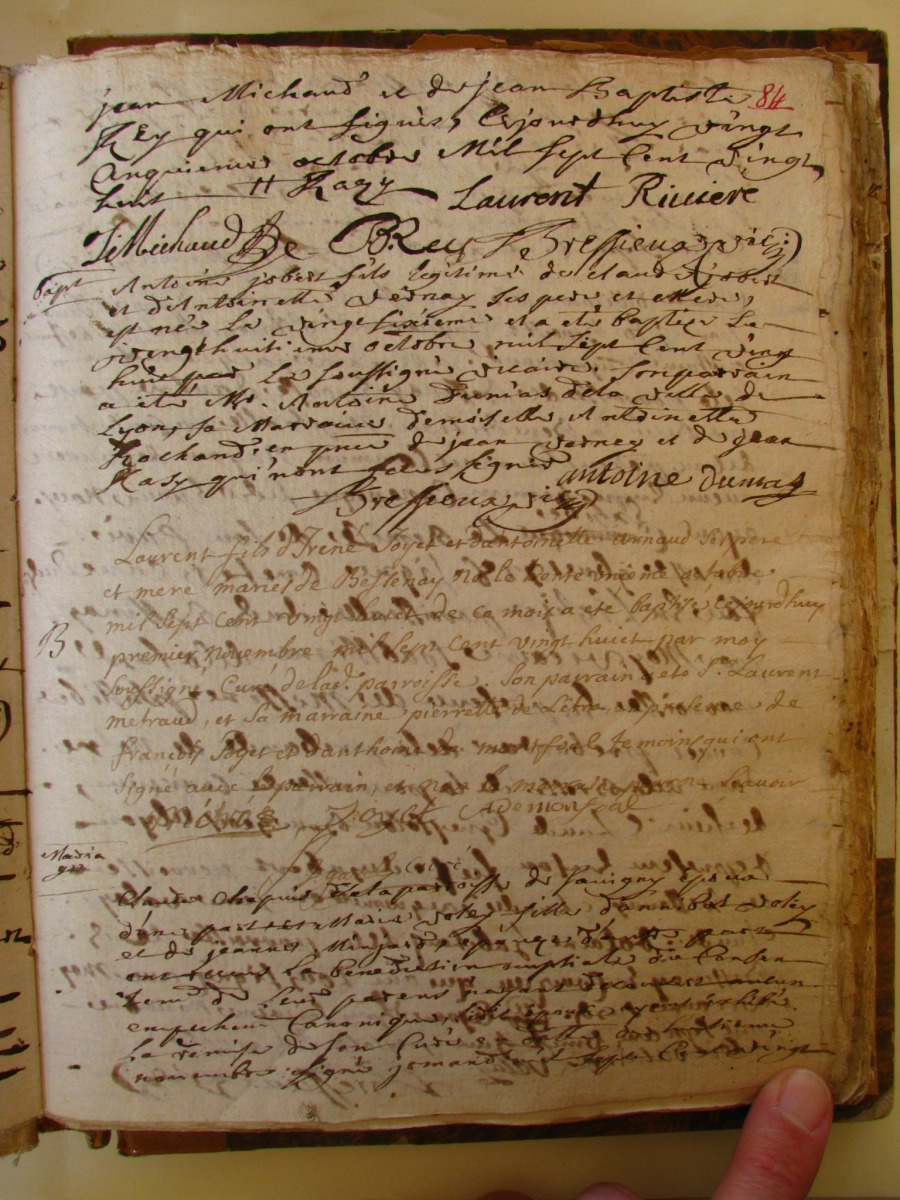 jean Michaud et de jean Baptiste 84
Rey qui ont signes, Cejourdhuy vingt
Cinquieme octobre Mil sept Cent vingt
huit Razy Laurent Riuiere
Michaud De Bressieux vic:
Bapt Antoine jobert fils legitime de claude jobert
et d'Antoinette vernay ses pere et Mere,
est né le vingt sixieme et a eté baptisé Le
vingthuitieme octobre mil sept Cent vingt
huit par Le soussigné vicaire. Son parrain
a eté Mr. Antoine Dumas dela ville de
Lyon, sa Marraine demoiselle Antoinette
Rochand, en pnce de jean verney et de jean
Razy qui n'ont signes antoine dumas
Bressieux
Laurent fils d'Irené Soyet et d'antoinette arnaud ses pere
et mere mariés de Bessenay né le trente unieme octobre
mil sept cent vingt huict de ce mois a ete baptise cejourdhuy
B premier novembre mil sept cent vingt huict par moy
soussigné Curé de lad. parroisse. Son parrain a ete Sr. Laurent
metraud, et sa marraine pierrette de Letra, en presence de
francois Soyet et d'anthoine de montfort temoins qui ont
signé avec le parrain, et non la marraine scavoir
Curé
Maria
ge Claude Chapuis de la parroisse de sauigny epoux
d'une part et Marie voley fille d'annibal voley
et de jeanne Minjard epouse d'autre part
ont recus La benediction nuptiale du Consen
tement de Leurs parens aucun
empechem Canonique, led. epoux ayant exhibé
La remise de son Curé
novembre signé jemand mil sept Cent vingt